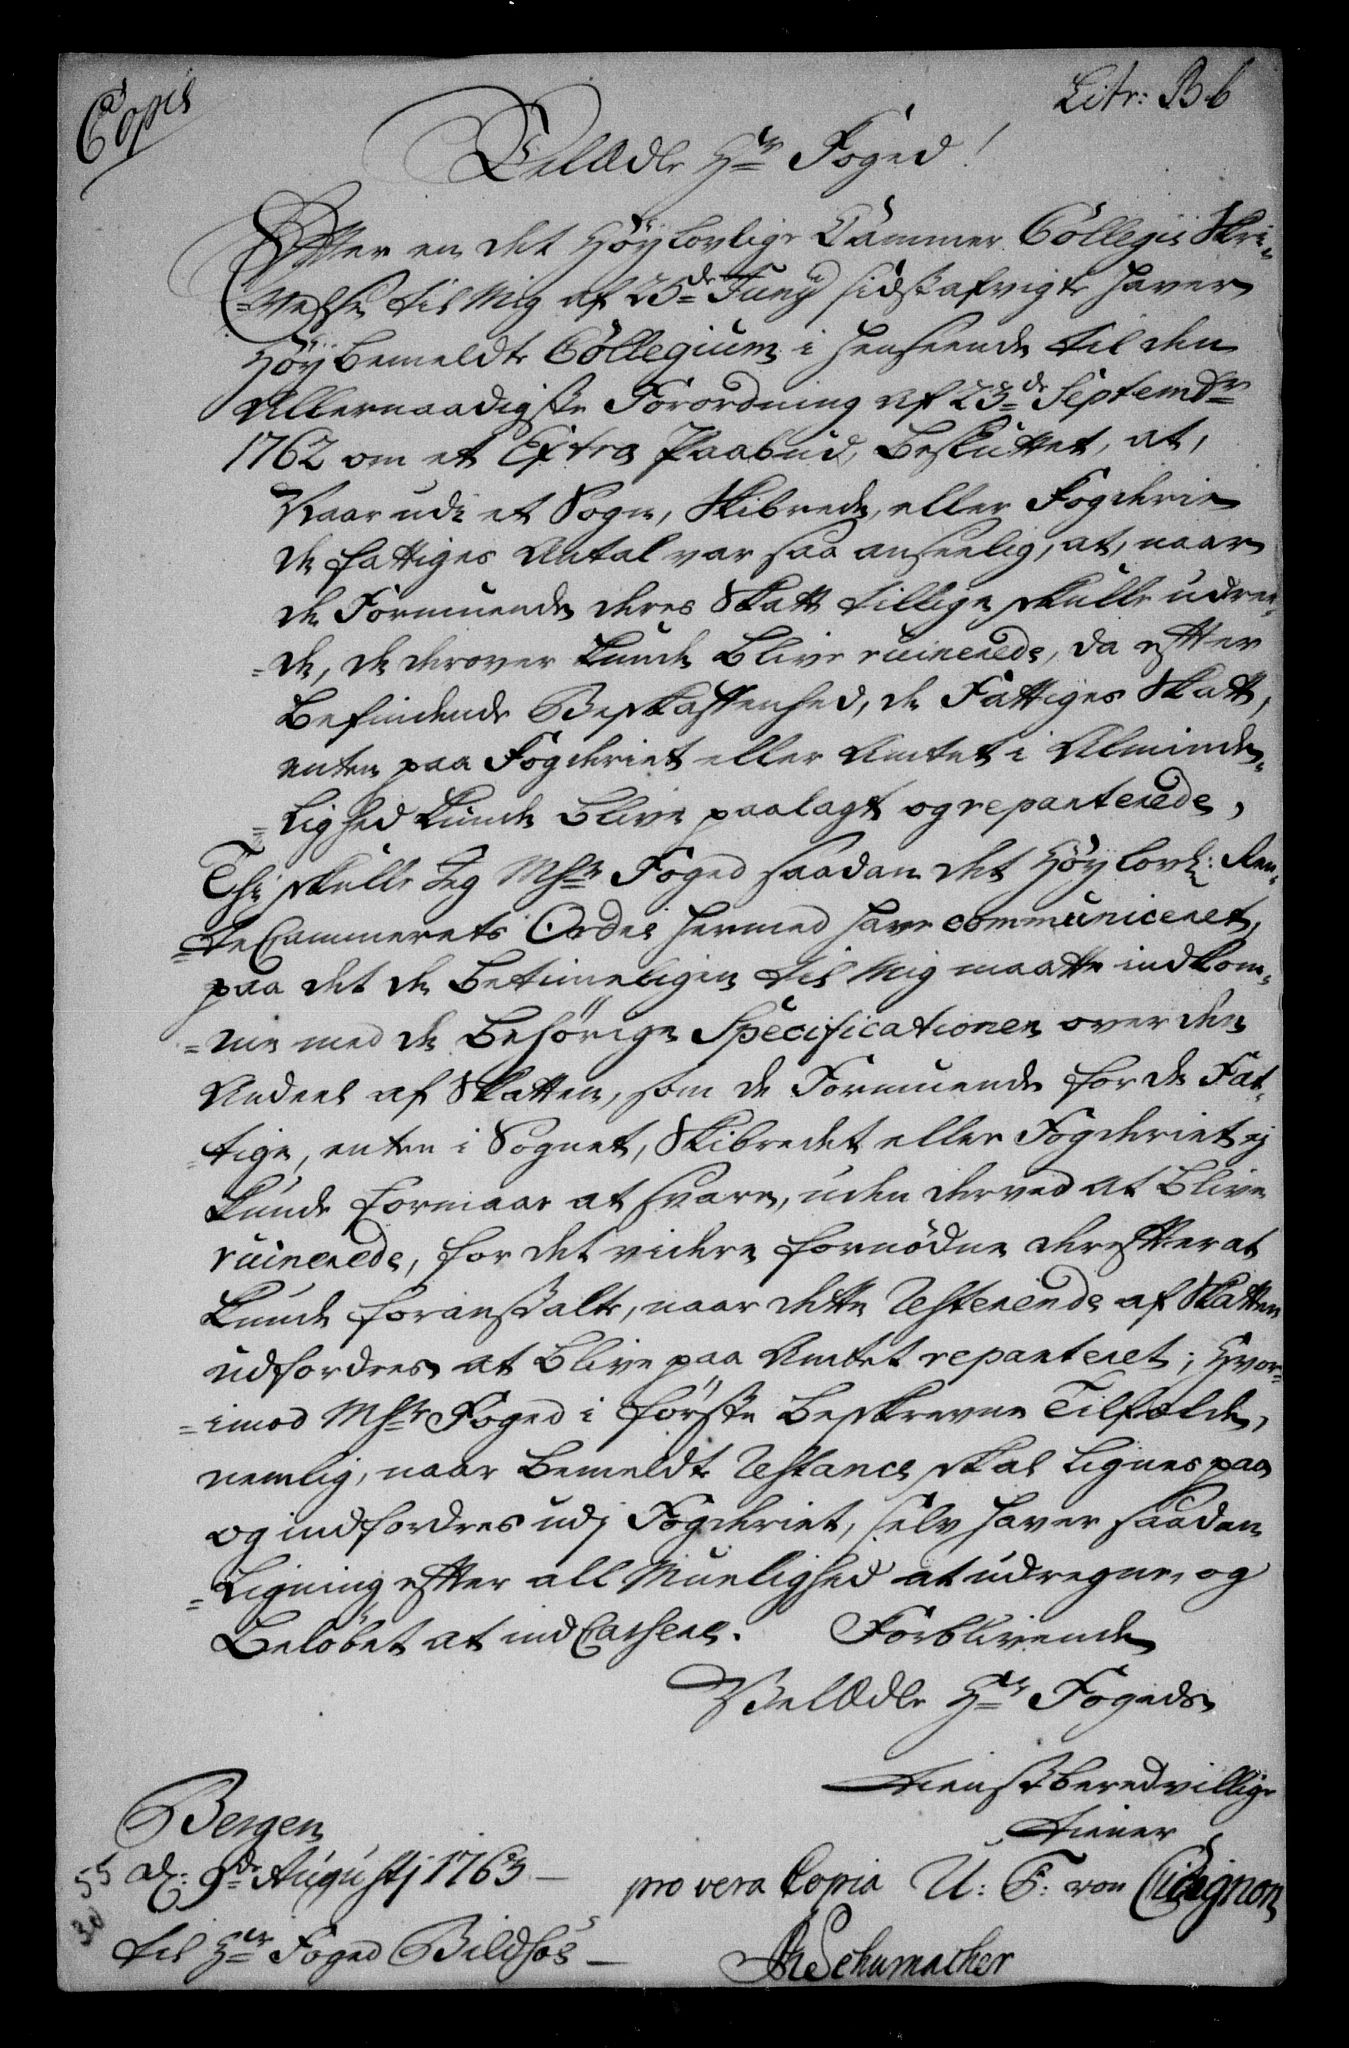 Copie
Litr: B b
Velædle Hr Foged!
Efter en det Höylovlige Cammer Collegii Skri-
-velse til Mig af 25de Junij sidstafvigte haver
Höybemeldte Collegium i henseende til den
Allernaadigste Forordning af 23de Septembr
1762 om et Extra Paabud, besluttet, at,
Naar udi et Sogn, Skibrede, eller Fogderie
de fattiges Antal var saa anseelig, at, naar
de Formuende deres Skatt tillige skulle udree-
-de, de derover kunde blive ruinerede, da efter
befindende Beskaffenhed, de Fattiges Skatt,
enten paa Fogderiet eller Amtet i Alminde-
-lighed kunde blive paalagt og reparterede,
Thi skulle Jeg MhHr Foged saadan det Höylovl: Ren-
-te Cammerets Ordre hermed have communiceret,
paa det de betimeligen til Mig maatte indkom-
-me med de behörige Specificationer over den
Andeel af Skatten, som de Formuende for de Fat-
-tige, enten i Sognet, Skibredet eller Fogderiet ej
kunde formaae at svare, uden derved at blive
ruinerede, for det videre fornödne derefter at
kunde foranstalte, naar dette Resterende af Skatten
udfordres at blive paa Amtet reparteret; hvor-
-imod MhHr Foged i förste beskrevne Tilfælde,
nemlig, naar bemeldte Restance skal lignes paa
og indfordres udj Fogderiet, selv haver saadan
-Ligning efter all Muelighed at udregne, og
Belöbet at ind Cassere. Forblivende
Velædle Hr Fogeds
tienstberedvillige
tiener
Bergen
d: 9de Augustj 1763
55
30
pro vera Copia U: F: von Cicignon
til Hr Foged Bildsöe
Schumacher